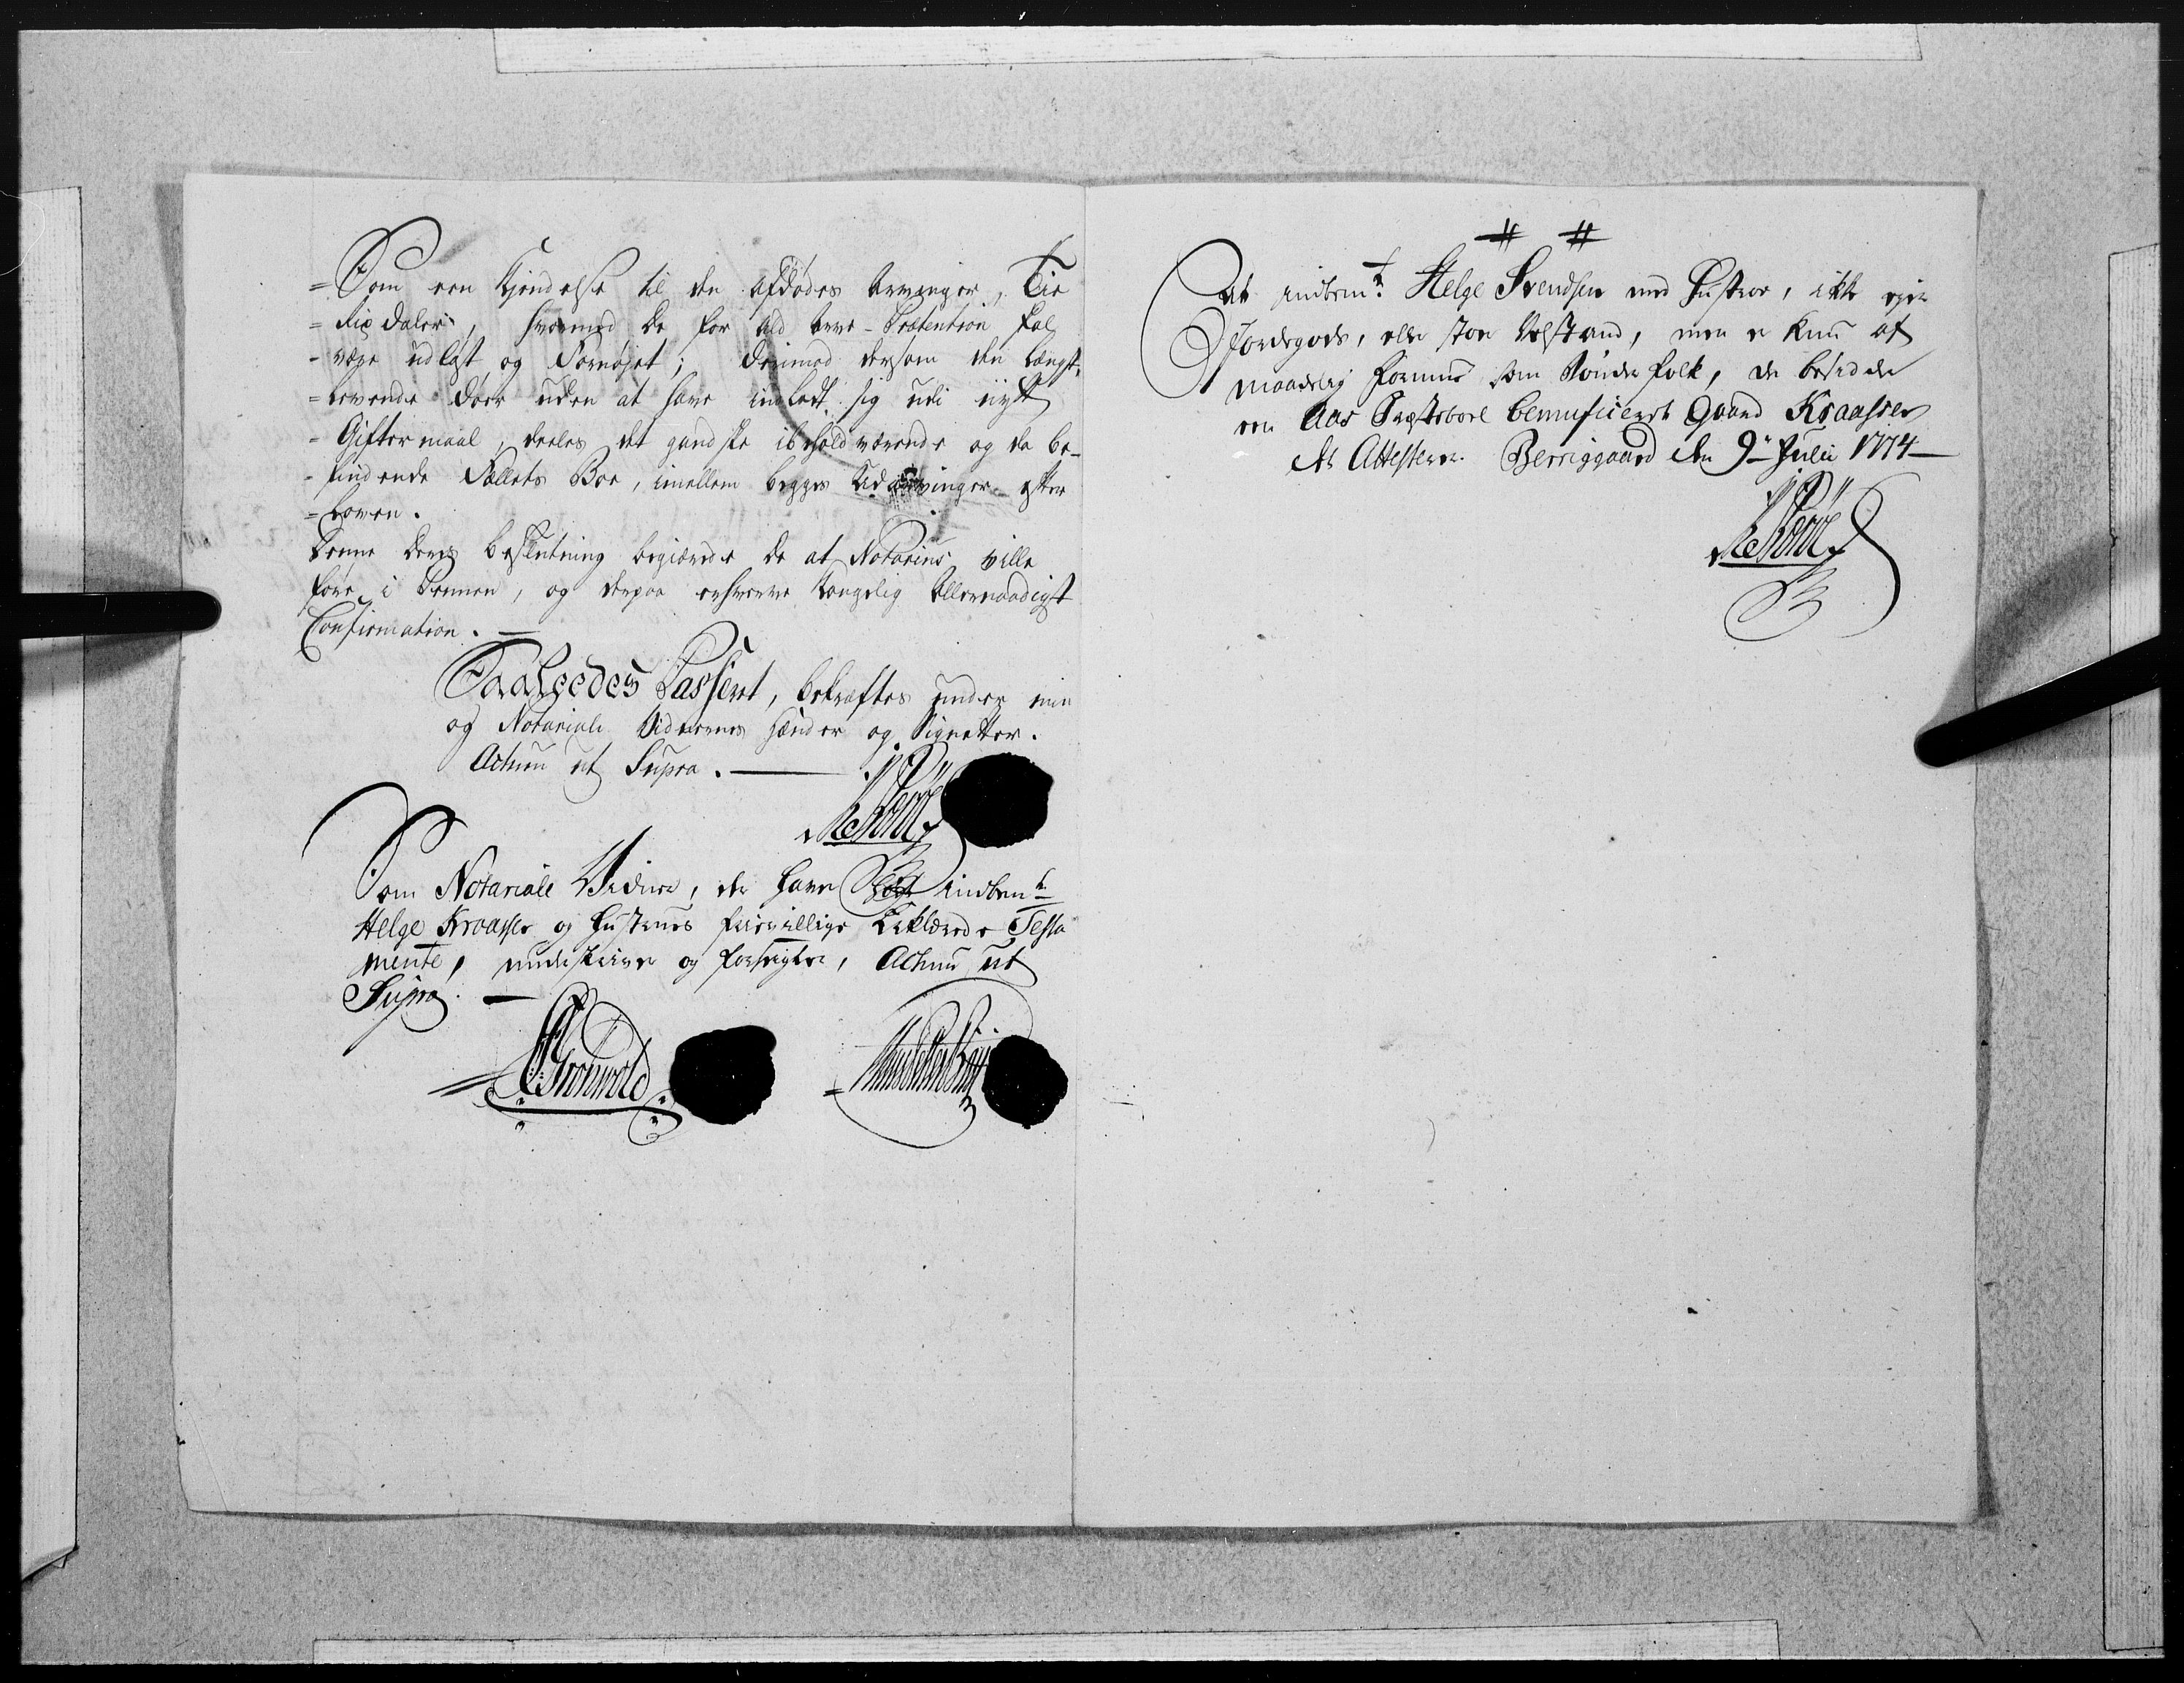 = Som een Kjendelse til den afdødes Arvinger, Tie
= Rixdaler, hvormed de for ald Arve-Prætention skal
- være udløst og Fornøjet; Derimod dersom den længst-
= levende døer uden at have indladt sig udi nytt
- Giftermaal, deeles det gandske i behold værende og da be-
- findende Fællets Boe, imellem begges Udarvinger efter
= Loven.
Denne deres beslutning begiærede de at Notarius ville
føre i Pennen, og derpaa erhverve Kongelig Allernaadigst
Confirmation. —
Saaleedes Passeret, bekræftes under min
og Notariale Vidnernes Hænder og Signetter.
Actum ut Supra. —
Som Notariale Vidner, der have hørt indbem.te
Helge Kraasse og Hustrues frievillige Erklærede Testa
mente, underskriver og forseigler, Actum ut
Supra. —
Gronwold
# #
At indbem.te Helge Svendsen med Hustroe, ikke ejer
Jordegods, eller stor Velstand, men er kun af
maadelig Formue som Bønder folk, der besidder
een Aas Præstebole beneficeret Gaard Kraasse
det Attesterer. Berriggaard den 9de Julii 1774 —